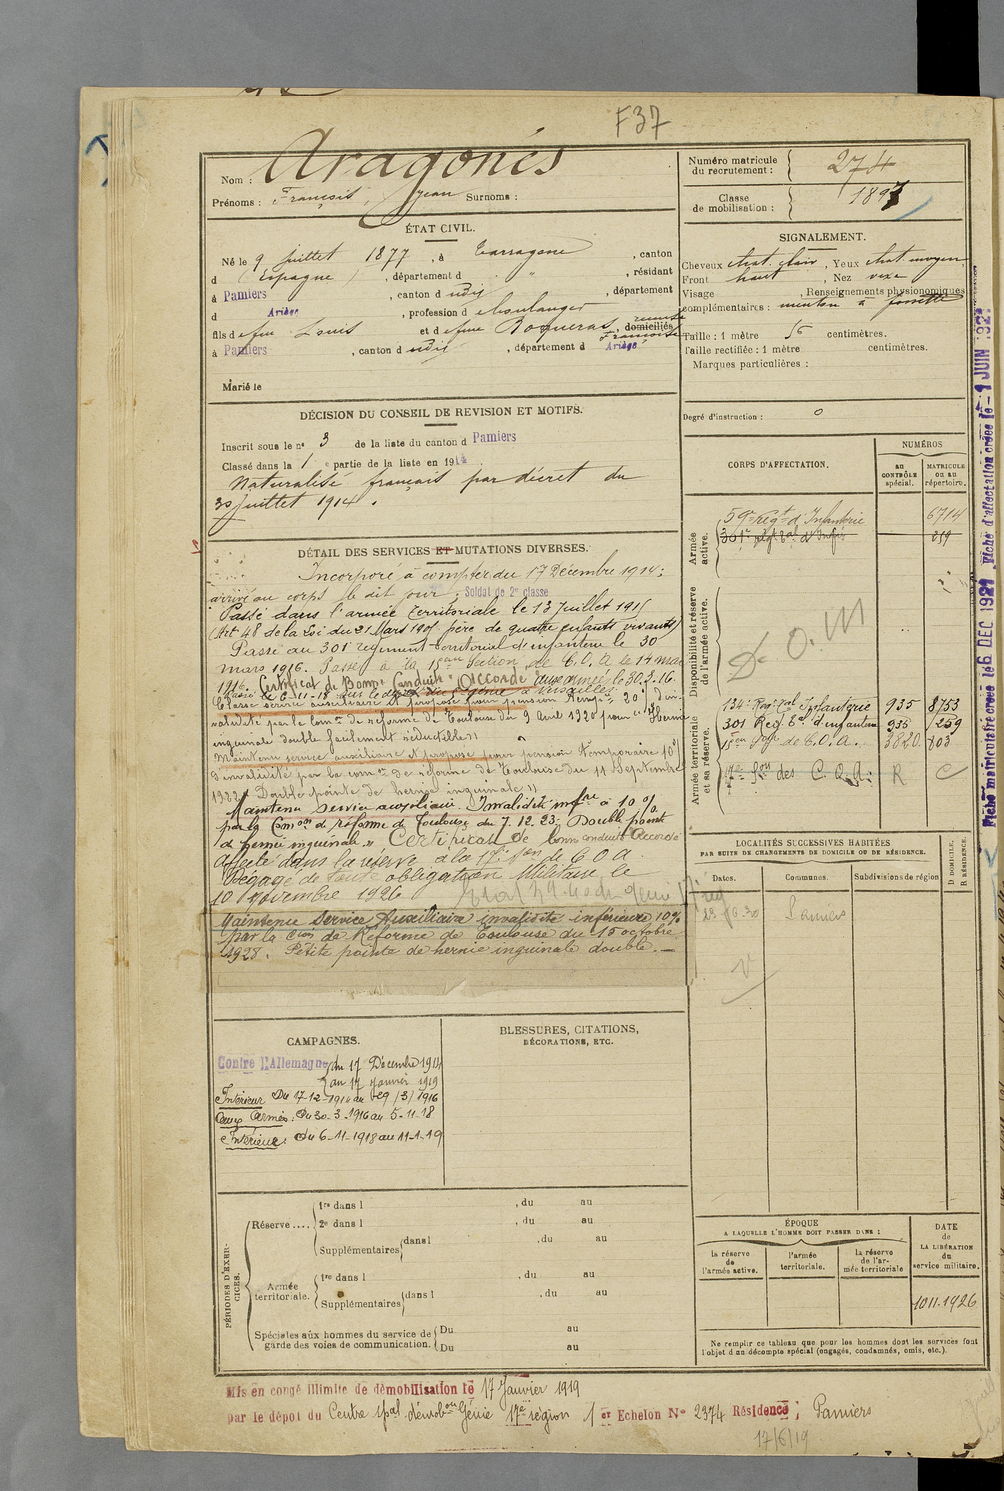 F37
Nom : Aragonés
Prénoms : François, Jean Surnoms :
Numéro matricule du recrutement : 274
Classe de mobilisation : 1897
ÉTAT CIVIL.
Né le 9 juillet 1877, à Tarragone, canton
d (Espagne), département d " , résidant
à Pamiers, canton d udit, département
d Ariège, profession d boulanger
fils d efeu Louis et d efeue Roqueras, domiciliés
à Pamiers, canton d udit, département d Ariège
Marié le
SIGNALEMENT.
Cheveux chat. clair, Yeux chat moyen
Front haut, Nez vexe
Visage , Renseignements physionomiques
complémentaires : menton à fossette
Taille : 1 mètre 55 centimètres.
Taille rectifiée : 1 mètre centimètres.
Marques particulières :
Degré d'instruction : 0
DÉCISION DU CONSEIL DE REVISION ET MOTIFS.
Inscrit sous le n° 3 de la liste du canton d Pamiers
Classé dans la 1 e partie de la liste en 1914
Naturalisé français par décret du
30 juillet 1914.
DÉTAIL DES SERVICES ET MUTATIONS DIVERSES.
Incorporé à compter du 17 Décembre 1914;
arrivé au corps le dit jour; Soldat de 2e classe
Passé dans l'armée territoriale le 13 Juillet 1915
(Art 48 de la Loi du 21 Mars 1905 père de quatre enfants vivants)
Passé au 301e régiment territorial d'infanterie le 30
mars 1916. Passé à la 15eme Section de C.O.A le 14 mai
1916. Certificat de Bonne Conduite "Accordé"
Passé le 6-11-18 sur le dépôt du 5e génie à Versailles
Classé service auxiliaire et proposé pour pension temp 20% d'in-
validité par la Comon de réforme de Toulouse du 9 Avril 1920 pour "Hernie
inguinale double facilement réductible"
Maintenu service auxiliaire et proposé pour pension temporaire 10%
d'invalidité par la comon de réforme de Toulouse du 11 Septembre
1922 "Double pointe de hernie inguinale"
Maintenu service auxiliaire. Invalidité infre à 10%
par la Comon d réforme d Toulouse du 7.12.23; "Double pointe
d hernie inguinale" Certificat de bonne conduite Accordé
Affecté dans la réserve à la 17e Son de C.O.A
Dégagé de toute obligation Militaire le
10 novembre 1926
Maintenu Service Auxiliaire invalidité inférieure 10%
par la Cion de Réforme de Toulouse du 15 octobre
1928. Petite pointe de hernie inguinale double. —
CORPS D'AFFECTATION.
NUMÉROS
AU CONTRÔLE spécial.
MATRICULE ou au répertoire.
Armée active.
59e Régt d'Infanterie 6714
301e Régt tal d'Infie 259
Disponibilité et réserve de l'armée active.
D. O. M
Armée territoriale et sa réserve.
134e Régt tal Infanterie 935 8753
301 Reg tal d'infanterie 936 259
15eme Son de C.O.A. 3820 803
17e Son des C.O.A. R C
Fiche matriculaire créée le 6 DEC 1921 Fiche d'affectation créée le 1 JUIN 192
LOCALITÉS SUCCESSIVES HABITÉES
PAR SUITE DE CHANGEMENTS DE DOMICILE OU DE RÉSIDENCE.
Dates. Communes. Subdivisions de région. D DOMICILE. R RÉSIDENCE.
Pamiers
CAMPAGNES.
Contre l'Allemagne du 17 Décembre 1914
au 17 Janvier 1919
Intérieur Du 17-12-1914 au 29/3/1916
aux Armées: Du 30-3-1916 au 5-11-18
Intérieur: Du 6-11-1918 au 11-1-19
BLESSURES, CITATIONS,
DÉCORATIONS, ETC.
PÉRIODES D'EXERCICES.
Réserve .... 1re dans l , du au
2e dans l , du au
Supplémentaires dans l , du au
Armée territoriale. 1re dans l , du au
Supplémentaires dans l , du au
Spéciales aux hommes du service de garde des voies de communication. Du au
Du au
ÉPOQUE
A LAQUELLE L'HOMME DOIT PASSER DANS :
la réserve de l'armée active.
l'armée territoriale.
la réserve de l'armée territoriale
DATE de LA LIBÉRATION du service militaire.
10 11.1926
Ne remplir ce tableau que pour les hommes dont les services font
l'objet d'un décompte spécial (engagés, condamnés, omis, etc.).
Mis en congé illimité de démobilisation le 17 Janvier 1919
par le dépôt du Centre 1pal démobon Génie 17e région 1 er Echelon N° 2374 Résidence ; Pamiers
17/6/19